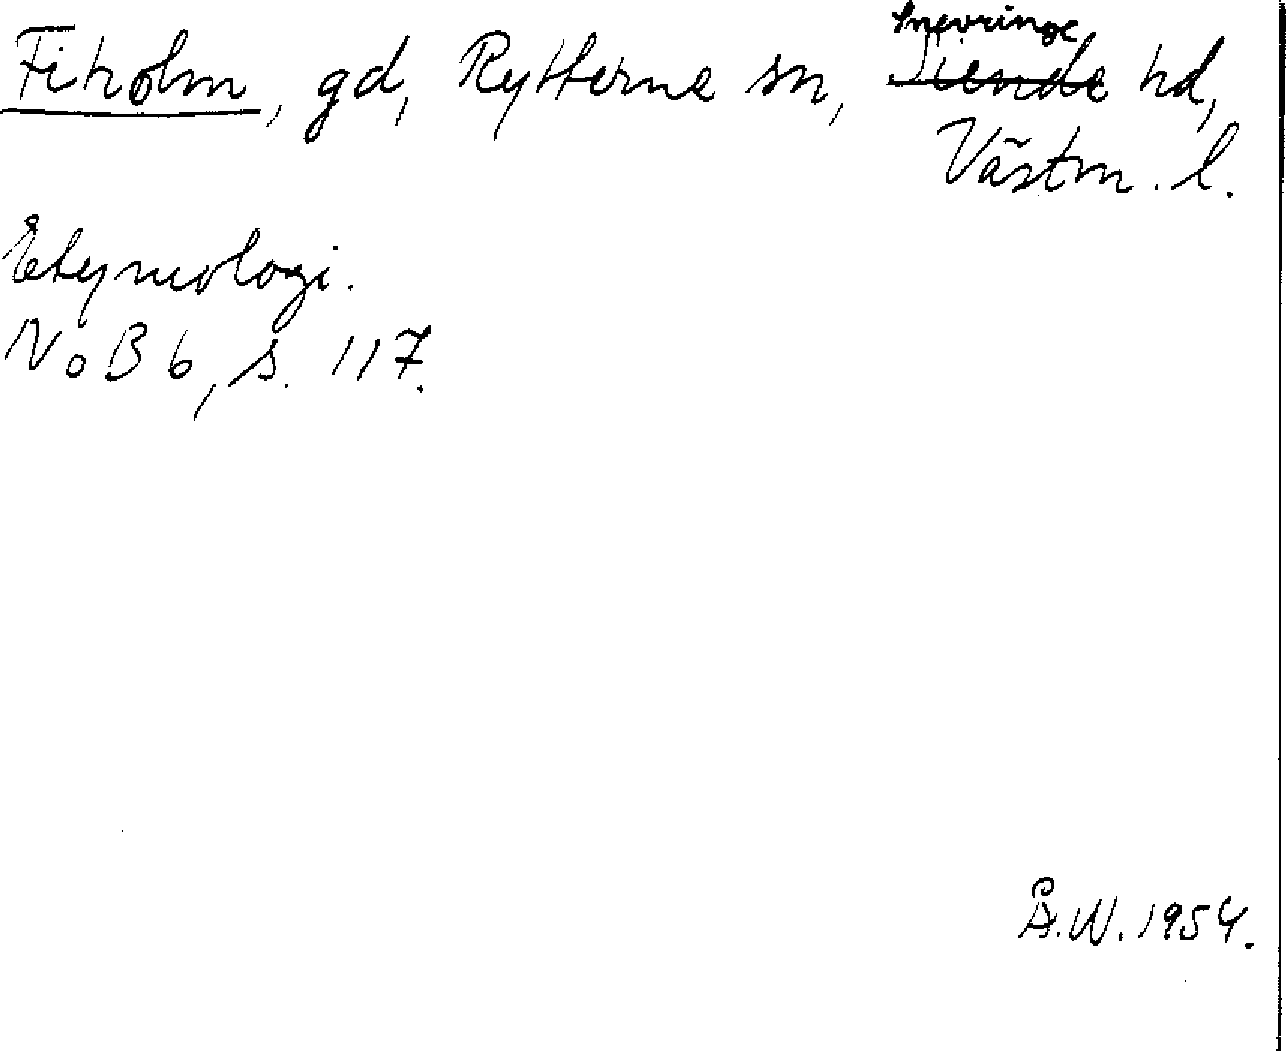 Fiholm, gd, Rytterne sn, Snevringe
Siende hd,
Västm. l.
Etymologi.
NoB 6, s. 117.
Å.W. 1954.